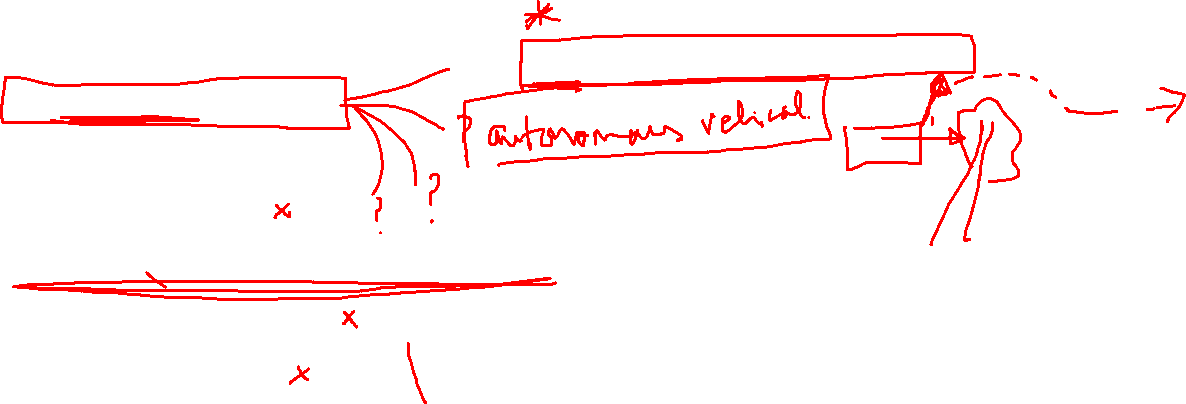 autonomous vehical.
? ?